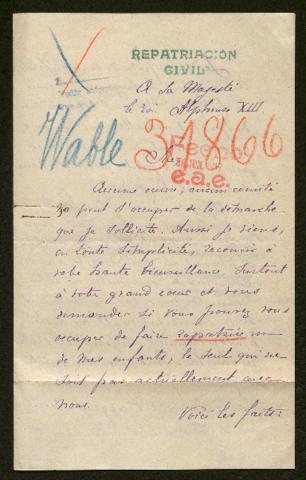 REPATRIACIÓN
CIVIL
A Sa Majesté
le roi Alphonse XIII
Wable
31866
Sire
e.a.e.
Aucune œuvre, aucun comité
ne peut s'occuper de la démarche
que je sollicite. Aussi je viens,
en toute simplicité, recourir à
votre haute bienveillance. Surtout
à votre grand cœur et vous
demander si vous pouvez vous
occuper de faire rapatrier un
de mes enfants, le seul qui ne
soit pas actuellement avec
nous.
Voici les faits: